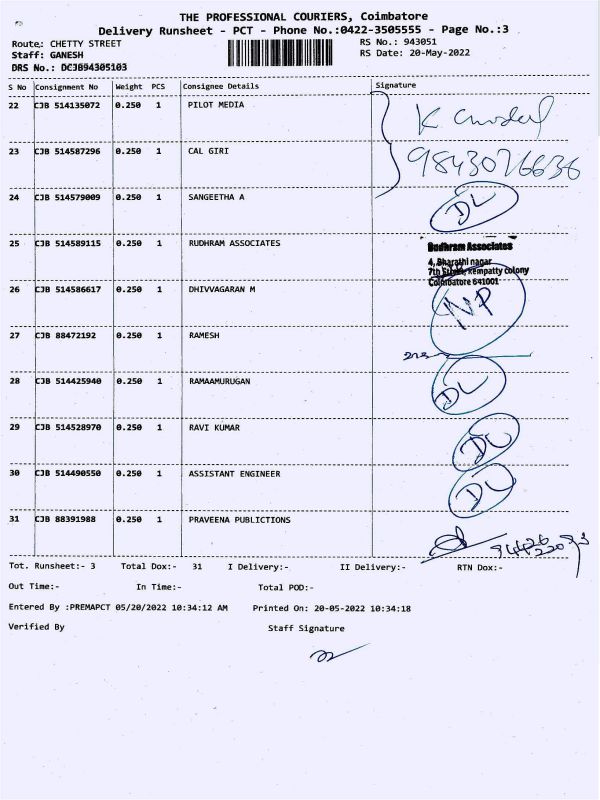 THE PROFESSIONAL COURIERS, Coimbatore
Delivery Runsheet - PCT - Phone No.:0422-3505555 - Page No.:3
Route: CHETTY STREET RS No.: 943051
Staff: GANESH RS Date: 20-May-2022
DRS No.: DCJB94305103
S No Consignment No Weight PCS Consignee Details Signature
22 CJB 514135072 0.250 1 PILOT MEDIA
23 CJB 514587296 0.250 1 CAL GIRI 9843076636
24 CJB 514579009 0.250 1 SANGEETHA A DL
25 CJB 514589115 0.250 1 RUDHRAM ASSOCIATES Rudhram Associates
4, Bharathi nagar
7th Street, kempatty colony
Coimbatore 641001
26 CJB 514586617 0.250 1 DHIVVAGARAN M NP
27 CJB 88472192 0.250 1 RAMESH
28 CJB 514425940 0.250 1 RAMAAMURUGAN DL
29 CJB 514528970 0.250 1 RAVI KUMAR DL
30 CJB 514490550 0.250 1 ASSISTANT ENGINEER DL
31 CJB 88391988 0.250 1 PRAVEENA PUBLICTIONS
Tot. Runsheet:- 3 Total Dox:- 31 I Delivery:- II Delivery:- RTN Dox:-
Out Time:- In Time:- Total POD:-
Entered By :PREMAPCT 05/20/2022 10:34:12 AM Printed On: 20-05-2022 10:34:18
Verified By Staff Signature